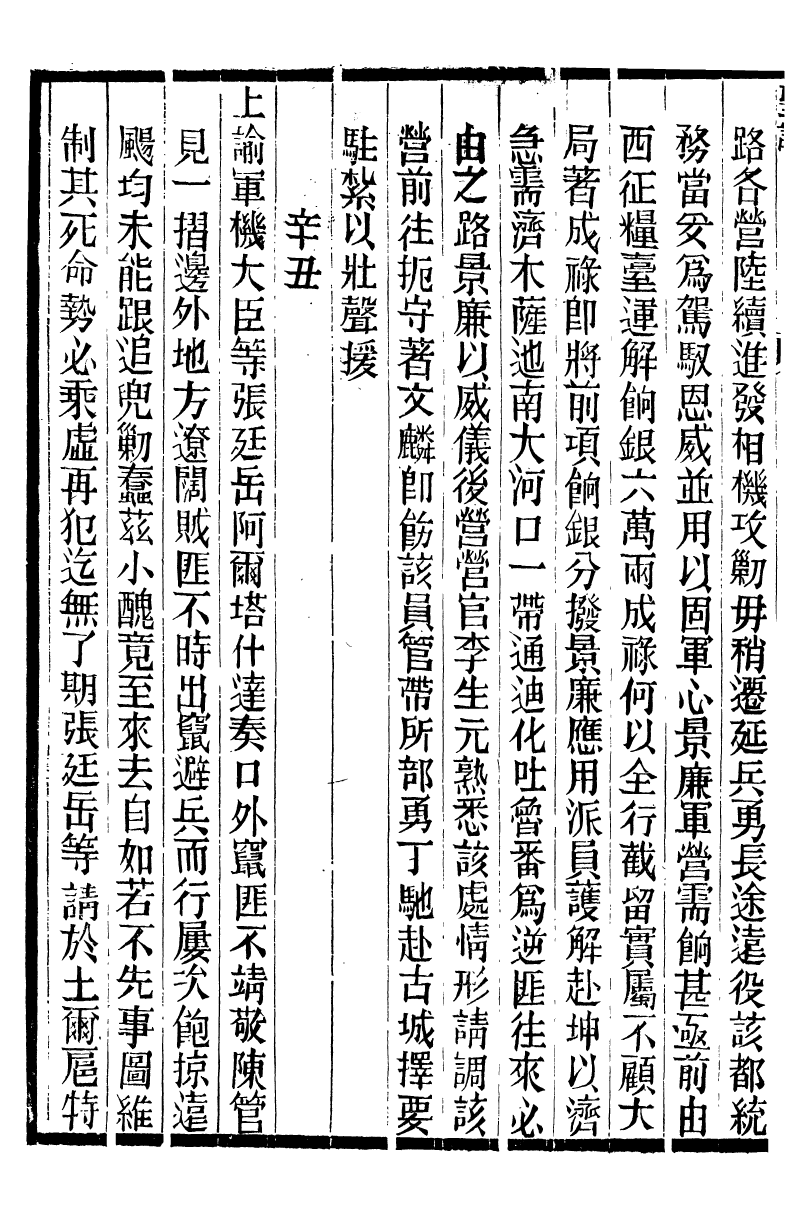 路各營陸續進發相機攻勦毋稍遷延兵勇長途遠役該都統
務當妥爲駕馭恩威並用以固軍心景廉軍營需餉甚亟前由
西征糧臺運解餉銀六萬兩成祿何以全行截留實屬不顧大
局著成祿卽將前項餉銀分撥景廉應用派員護解赴坤以濟
急需濟木薩迆南大河口一帶通迪化吐魯番爲逆匪往來必
由之路景廉以威儀後營營官李生元熟悉該處情形請調該
營前往扼守著文麟卽飭該員管帶所部勇丁馳赴古城擇要
駐紮以壯聲援
辛丑
上諭軍機大臣等張廷岳阿爾塔什達奏口外竄匪不靖敬陳管
見一摺邊外地方遼闊賊匪不時出竄避兵而行屢次飽掠遠
颺均未能跟追兜勦蠢茲小醜竟至來去自如若不先事圖維
制其死命勢必乘虛再犯迄無了期張廷岳等請於土爾扈特